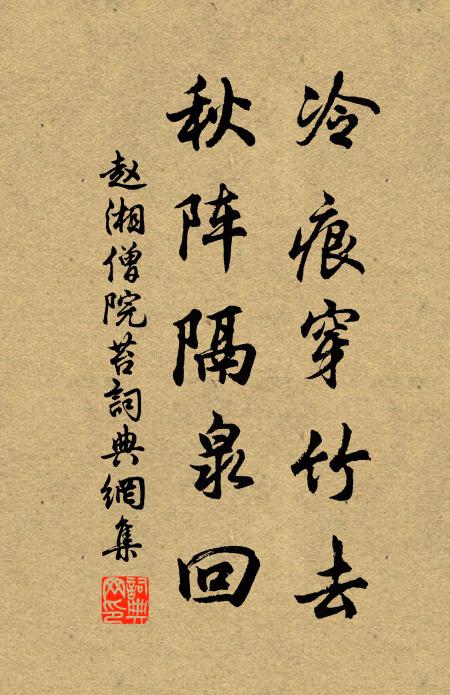 冷痕穿竹去
秋阵隔泉回
赵湘僧院苔詞典網集
詞典网印